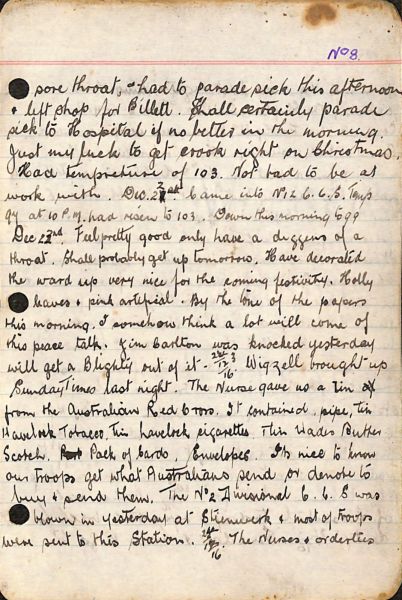 No 8.
sore throat, & had to parade sick this afternoon
& left shop for Billett. Shall certainly parade
sick to Hospital if no better in the morning.
Just my luck to get crook right on Christmas.
Had tempreture of 103. Not bad to be at
work with. Dec. 22nd Came into No 12 C.C.S. Temp
99 at 10 P.M. had risen to 103. Down this morning to 99
Dec 23rd. Feel pretty good only have a duggens of a
throat. Shall probably get up tomorrow. Have decorated
the ward up very nice for the coming festivity. Holly
leaves & pink artifical. By the tone of the papers
this morning. I somehow think a lot will come of
this peace talk. Jim Carlton was knocked yesterday
will get a Blighty out of it - 23/12/16 Wigzell brought up
Sunday Times last night. The Nurse gave us a tin
from the Australian Red Cross. It contained, pipe, tin
Havelock Tobacco, Tin havelock cigarettes. Tin Wades Butter
Scotch. Pack of Cards, Envelopes. Its nice to know
our troops get what Australians send or denote to
buy & send them. The No 2 Divisional C.C.S was
blown in yesterday at Steenwerk & most of troops
were sent to this Station. 24/12/16. The Nurses & orderlies